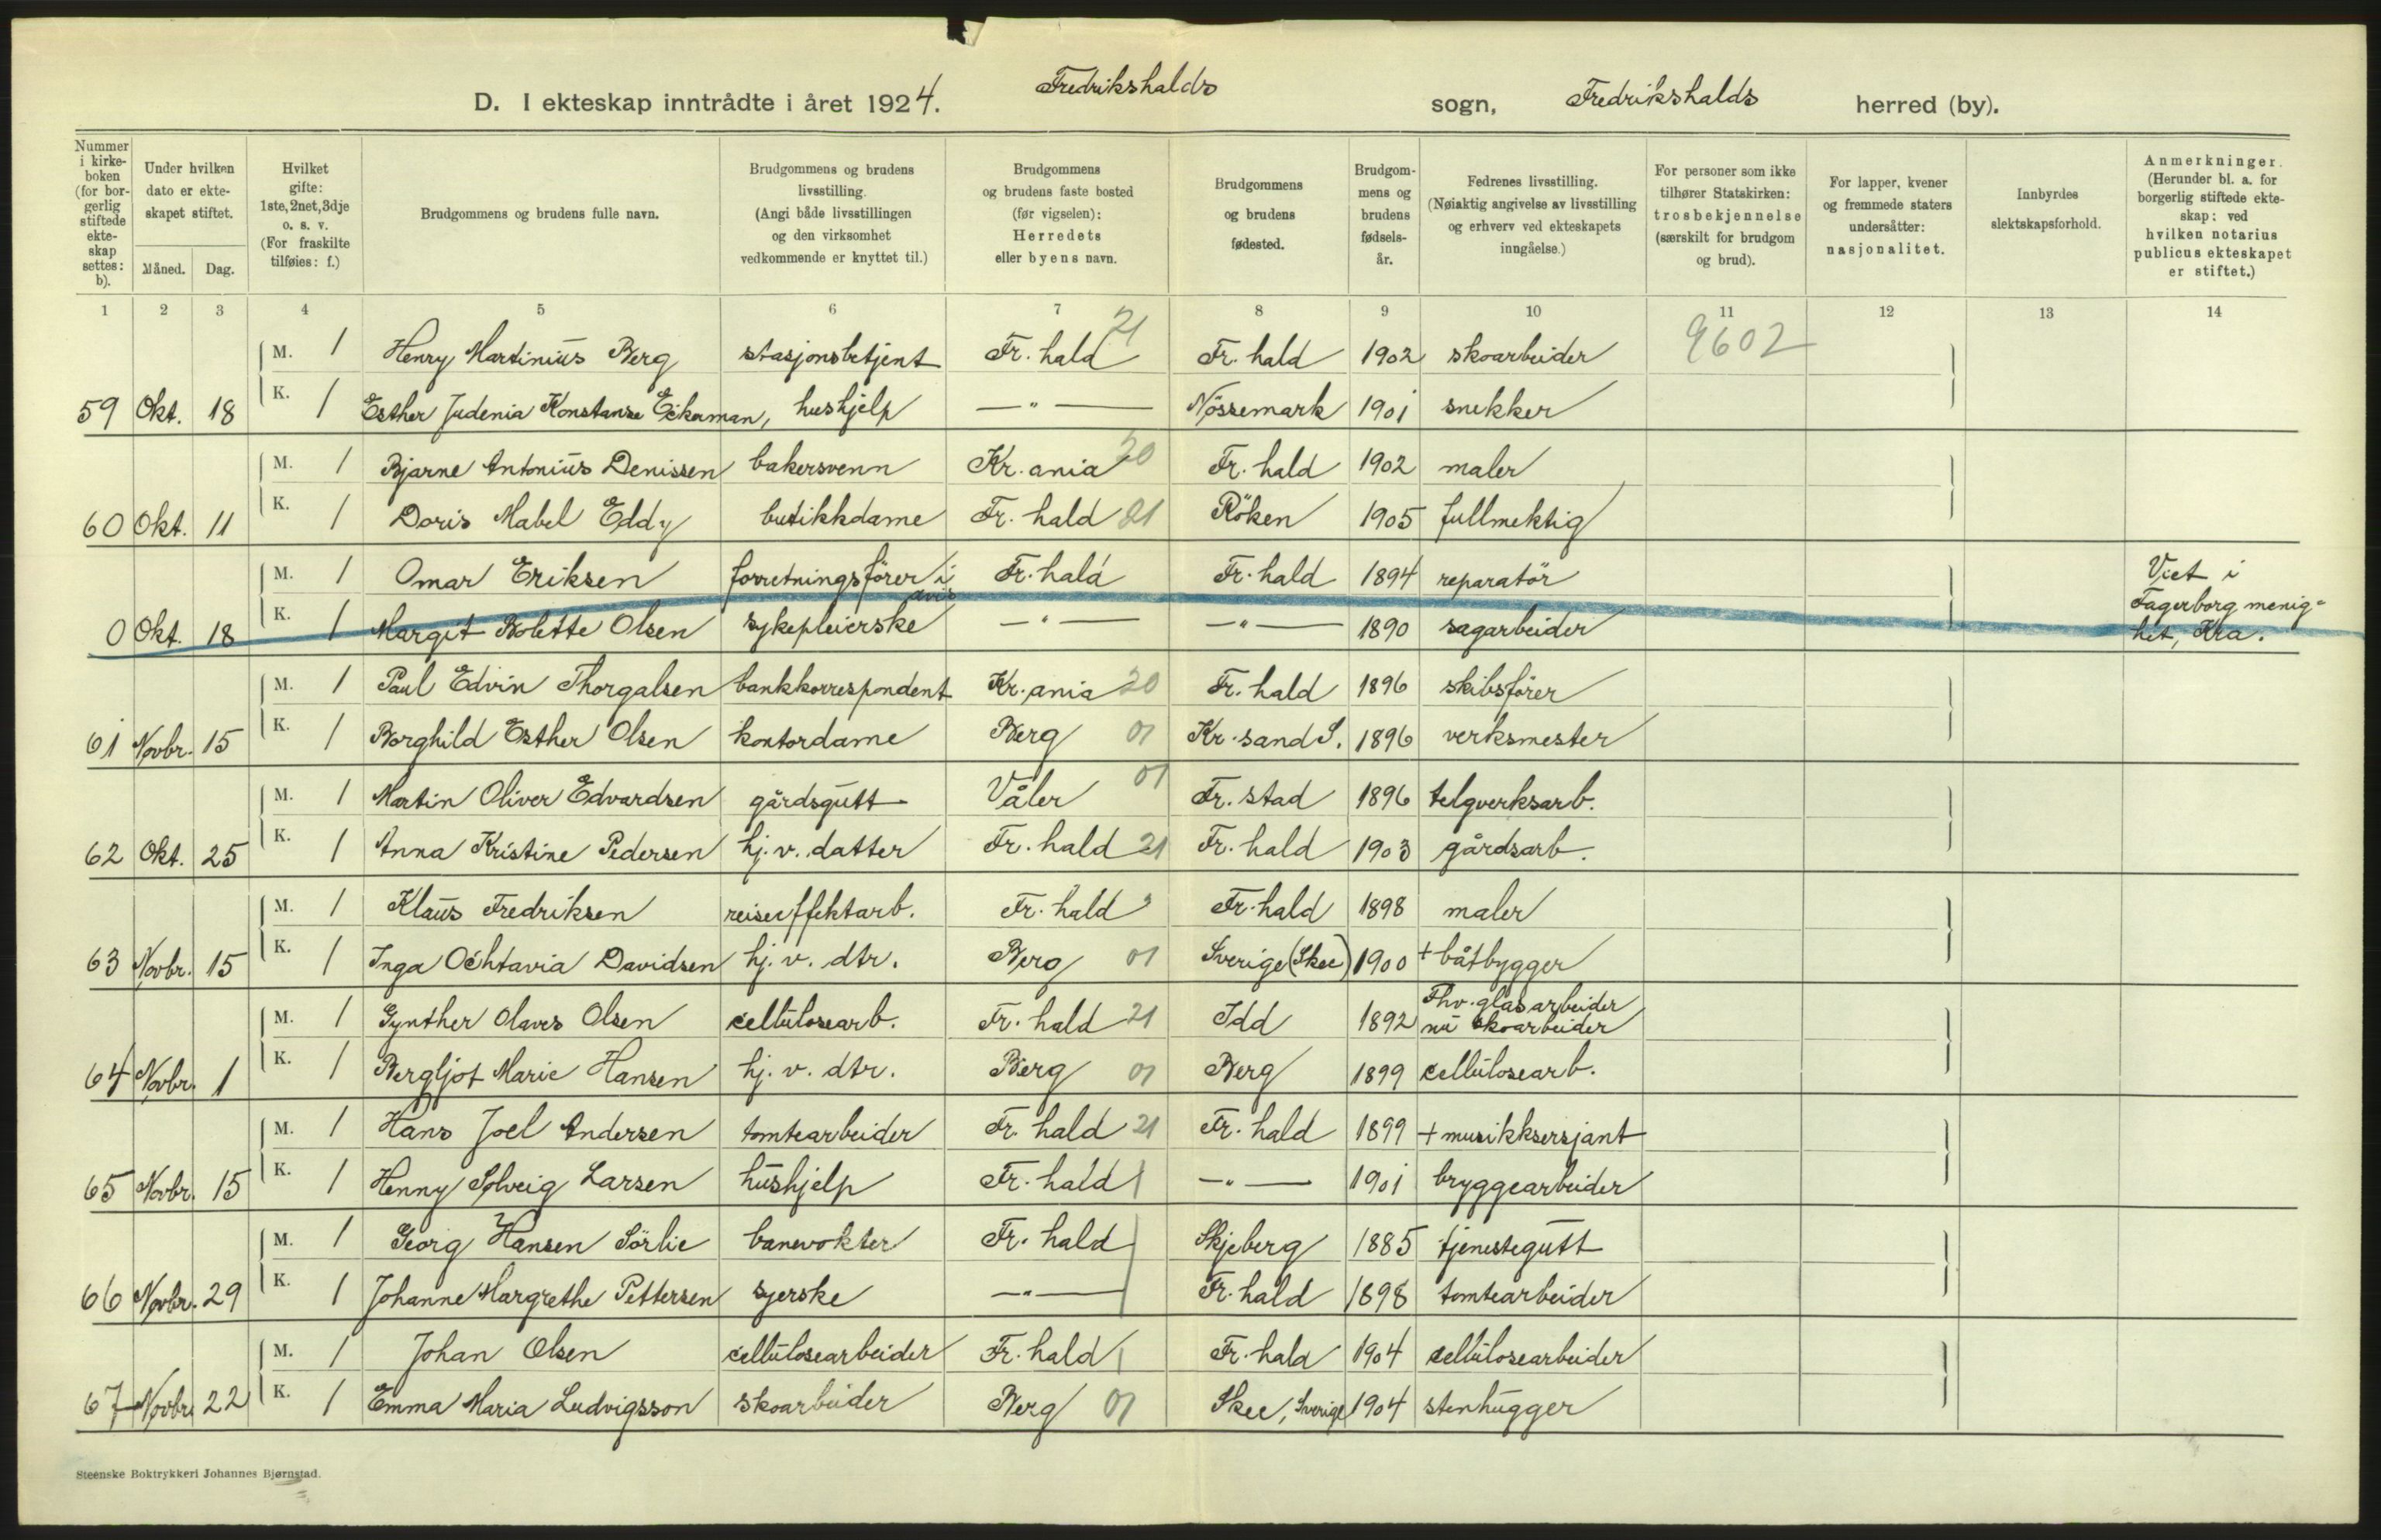 D. I ekteskap inntrådte i året 1924. Fredrikshalds sogn, Fredrikshalds herred (by).
Nummer i kirke-boken (for bor-gerlig stiftede ekte-skap settes: b).
Under hvilken dato er ekte-skapet stiftet.
Måned. Dag.
Hvilket gifte: 1ste, 2net, 3dje o. s. v. (For fraskilte tilføies: f.)
Brudgommens og brudens fulle navn.
Brudgommens og brudens livsstilling. (Angi både livsstillingen og den virksomhet vedkommende er knyttet til.)
Brudgommens og brudens faste bosted (før vigselen): Herredets eller byens navn.
Brudgommens og brudens fødested.
Brudgom-mens og brudens fødsels-år.
Fedrenes livsstilling. (Nøiaktig angivelse av livsstilling og erhverv ved ekteskapets inngåelse.)
For personer som ikke tilhører Statskirken: trosbekjennelse (særskilt for brudgom og brud).
For lapper, kvener og fremmede staters undersåtter: nasjonalitet.
Innbyrdes slektskapsforhold.
Anmerkninger. (Herunder bl. a. for borgerlig stiftede ekte-skap: ved hvilken notarius publicus ekteskapet er stiftet.)
1 2 3 4 5 6 7 8 9 10 11 12 13 14
M. 1 Henry Martinius Berg stasjonsbetjent Fr. hald 21 Fr. hald 1902 skoarbeider 9602
59 Okt. 18 K. 1 Esther Judenia Konstanse Eckerman, hushjelp —"— Nössemark 1901 snekker
M. 1 Bjarne Antonius Denissen bakersvenn Kr.ania 20 Fr. hald 1902 maler
60 Okt. 11 K. 1 Doris Mabel Eddy butikkdame Fr. hald 21 Röken 1905 fullmektig
M. 1 Omar Eriksen forretningsförer i avis Fr. hald Fr. hald 1894 reparatör Viet i
0 Okt. 18 K. 1 Margit Bolette Olsen sykepleierske —"— —"— 1890 sagarbeider Fagerborg menig=
het, Kra.
M. 1 Paul Edvin Thorgalsen bankkorrespondent Kr.ania 20 Fr. hald 1896 skibsförer
61 Novbr. 15 K. 1 Borghild Esther Olsen kontordame Berg 01 Kr.sand S. 1896 verksmester
M. 1 Martin Oliver Edvardsen gårdsgutt Våler 01 Fr. stad 1896 telgverksarb.
62 Okt. 25 K. 1 Anna Kristine Pedersen hj. v. datter Fr. hald 21 Fr. hald 1903 gårdsarb.
M. 1 Klaus Fredriksen reiseeffektarb. Fr. hald Fr. hald 1898 maler
63 Novbr. 15 K. 1 Inga Ochtavia Davidsen hj. v. dtr. Berg 01 Sverige (Skee) 1900 + båtbygger
M. 1 Gynther Olaves Olsen cellulosearb. Fr. hald 21 Idd 1892 Fhv. glasarbeider
nu skoarbeider
64 Novbr. 1 K. 1 Bergljot Marie Hansen hj. v. dtr. Berg 01 Berg 1899 cellulosearb.
M. 1 Hans Joel Andersen tomtearbeider Fr. hald 21 Fr. hald 1899 + musikksersjant
65 Novbr. 15 K. 1 Henny Solveig Larsen hushjelp Fr. hald —"— 1901 bryggearbeider
M. 1 Georg Hansen Sörlie banevokter Fr. hald Skjeberg 1885 tjenestegutt
66 Novbr. 29 K. 1 Johanne Margrethe Pettersen syerske —"— Fr. hald 1898 tomtearbeider
M. 1 Johan Olsen cellulosearbeider Fr. hald Fr. hald 1904 cellulosearbeider
67 Novbr. 22 K. 1 Emma Maria Ludvigsson skoarbeider Berg 01 Skee, Sverige 1904 stenhugger
Steenske Boktrykkeri Johannes Bjørnstad.